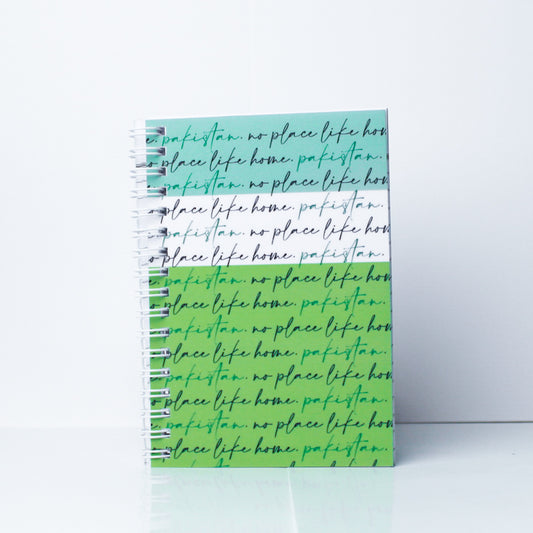 e. pakistan. no place like hom
no place like home. pakistan.
e. pakistan. no place like home
no place like home. pakistan.
e. pakistan. no place like hom
no place like home. pakistan.
e. pakistan. no place like hom
no place like home. pakistan.
e. pakistan. no place like hom
no place like home. pakistan.
e. pakistan. no place like hom
no place like home. pakistan.
e. pakistan. no place like hom
no place like home. pakistan.